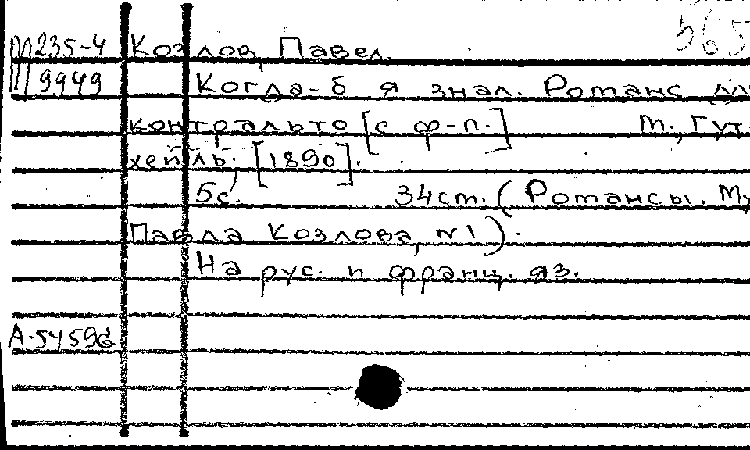 М235-4 Козлов, Павел. 565
9949 Когда-б я знал. Романс дл
контральто [с ф-п.] М., Гут-
хейль, [1890].
5с. 34см. (Романсы. М,
Павла Козлова, №1).
На рус. и франц. яз.
А-54596